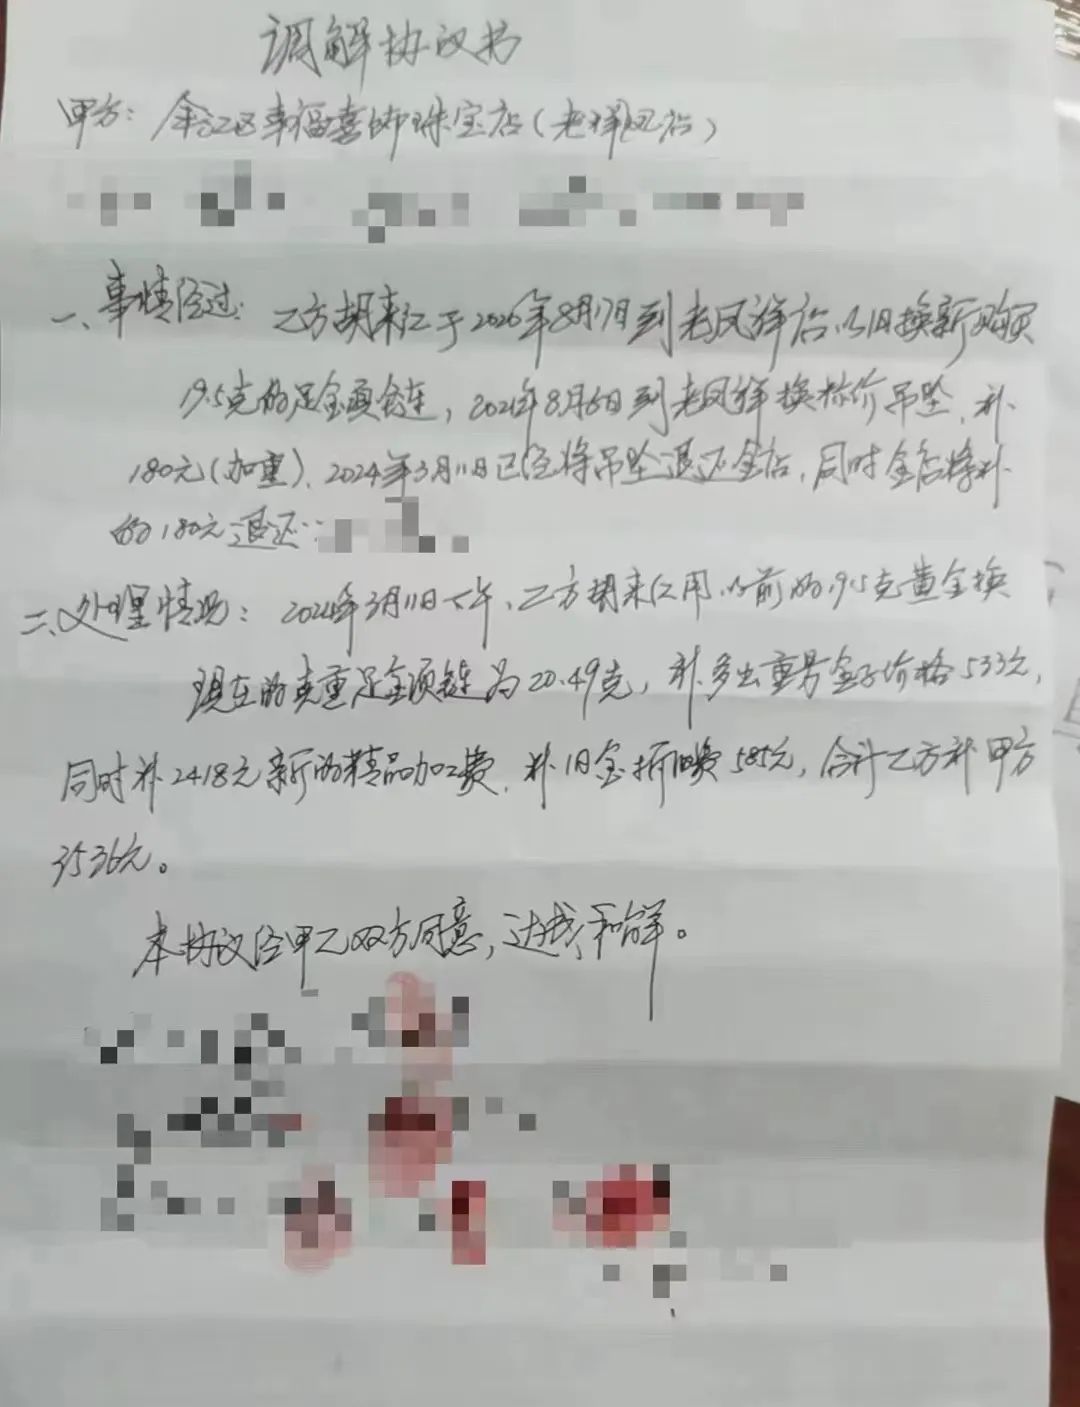 调解协议书
甲方：余江区幸福喜帅珠宝店（老祥凤店）
一、事情经过：乙方胡来仁于2020年8月17日到老凤祥店以旧换新购买
19.5克的足金项链，2021年8月6日到老凤祥换标价吊坠，补
180元（加重），2024年3月11日已经将吊坠退还金店，同时金店将补
的180元退还：
二、处理情况：2024年3月11日下午，乙方胡来仁用以前的19.5克黄金换
现在的克重足金项链为20.49克，补多出重号金子价格533元，
同时补2418元新的精品加工费，补旧金折旧费585元，合计乙方补甲方
3536元。
本协议经甲乙双方同意，达成和解。